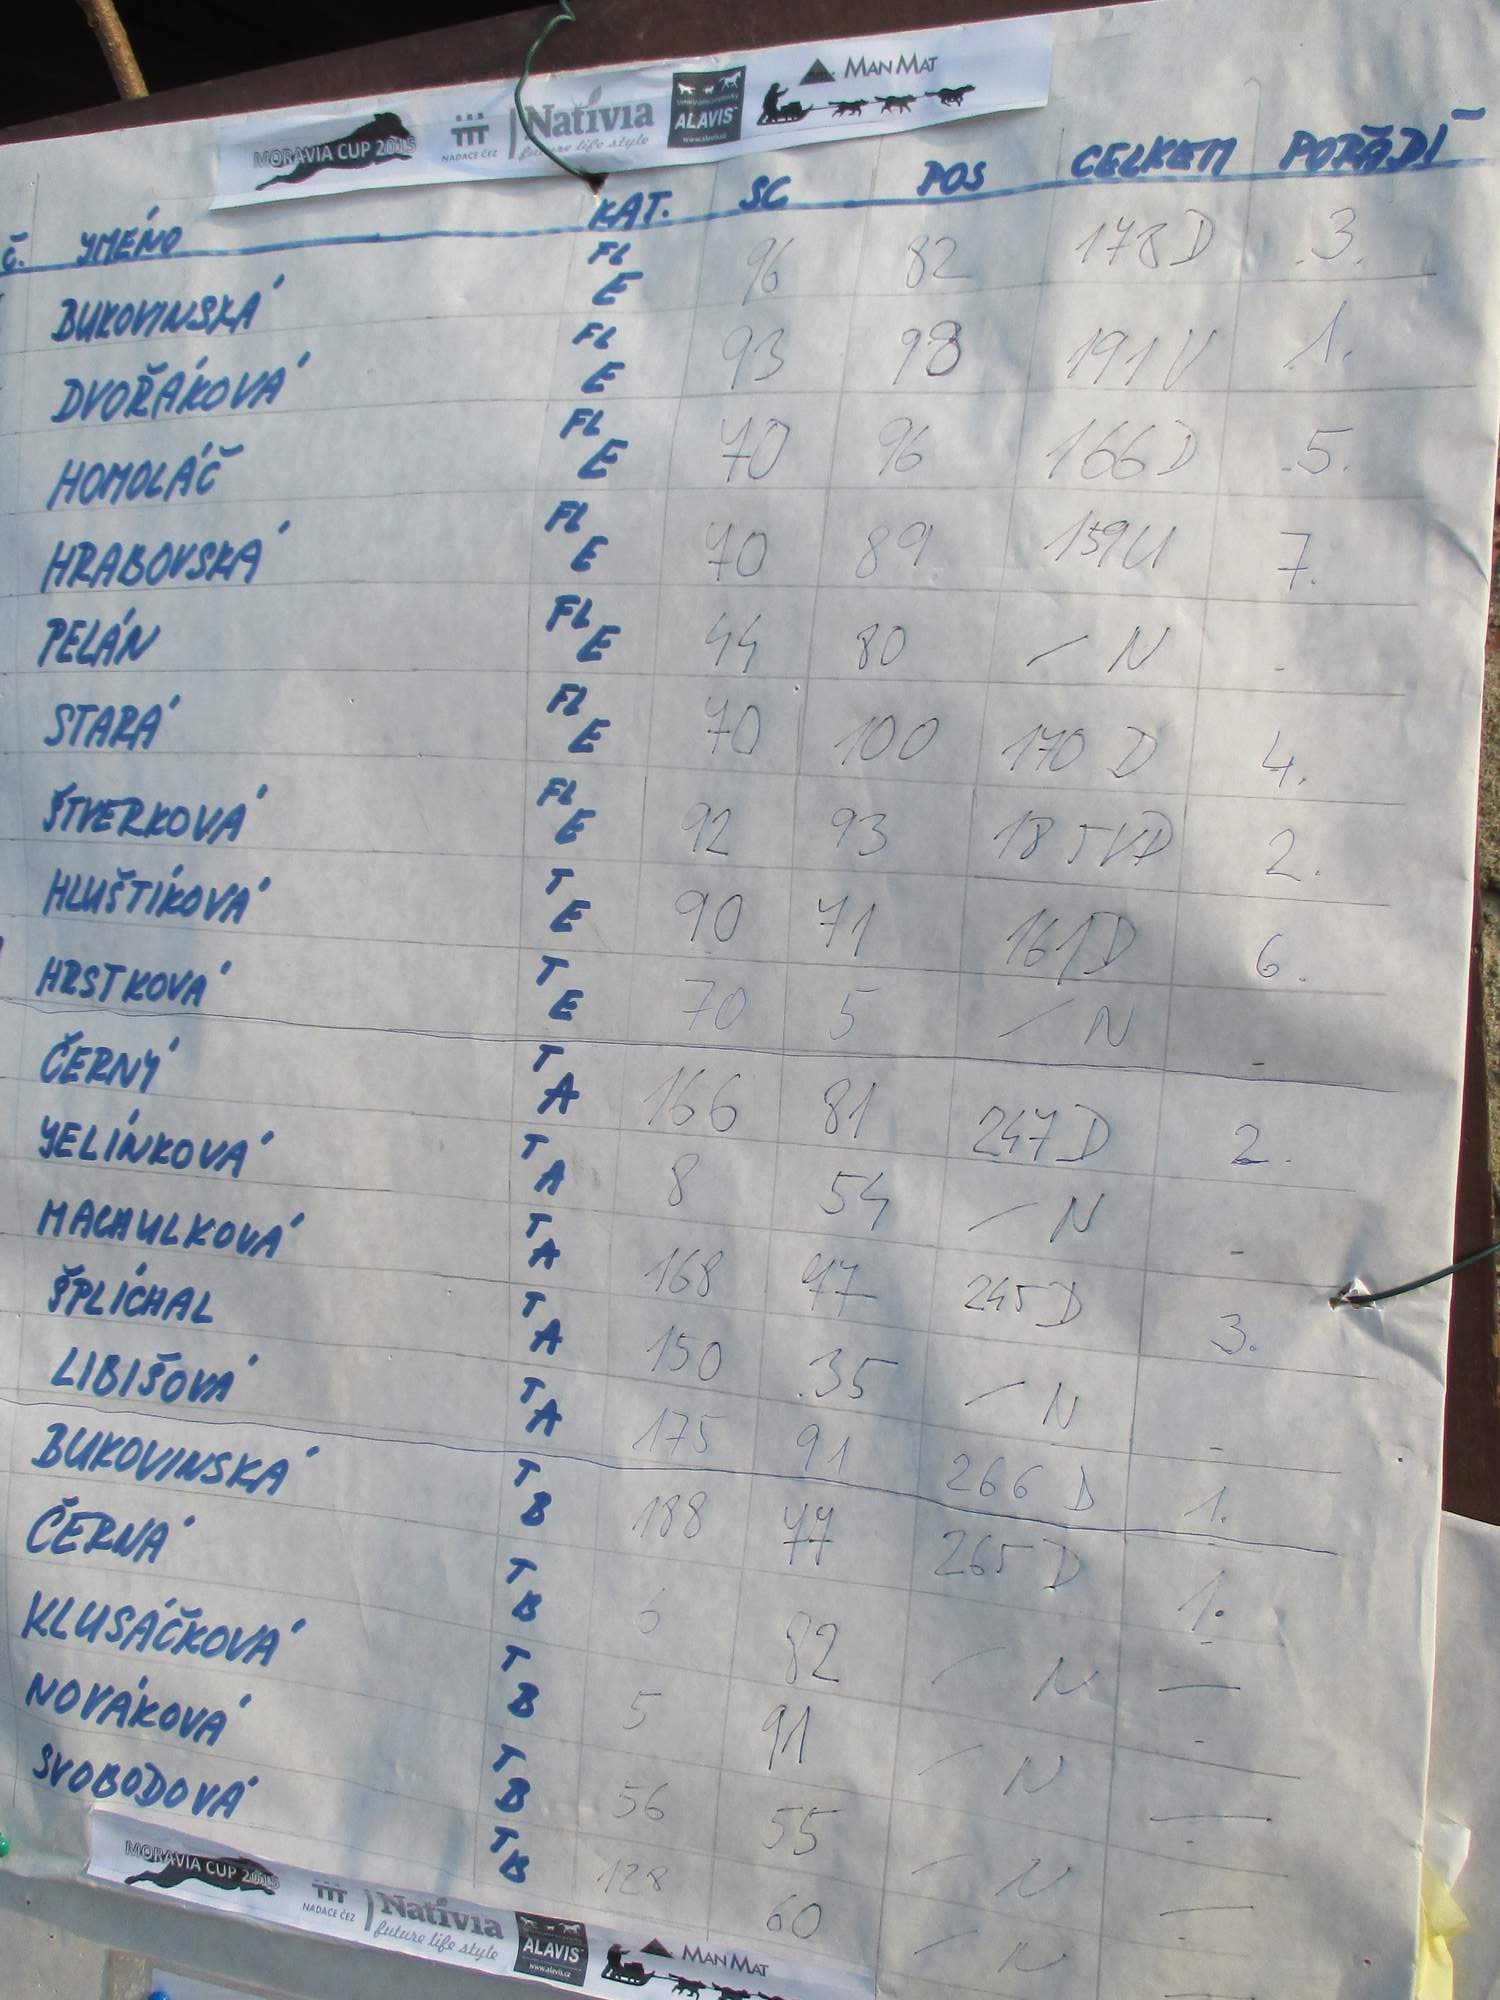 MORAVIA CUP 2015 NADACE ČEZ Nativia future life style ALAVIS www.alavis.cz MANMAT
č. JMÉNO KAT. SC POS CELKEM POŘADÍ
BUKOVINSKÁ FL E 96 82 178 D 3.
DVOŘÁKOVÁ FL E 93 98 191 V 1.
HOMOLÁČ FL E 70 96 166 D 5.
HRABOVSKÁ FL E 70 89 159 U 7.
PELÁN FL E 44 80 – N -
STARÁ FL E 70 100 170 D 4.
ŠTVERKOVÁ FL E 92 93 185 VD 2.
HLUŠTÍKOVÁ T E 90 71 161 D 6.
HRSTKOVÁ T E 70 5 – N -
ČERNÝ T A 166 81 247 D 2.
JELÍNKOVÁ T A 8 54 – N -
MACHULKOVÁ T A 168 77 245 D 3.
ŠPLÍCHAL T A 150 35 – N -
LIBIŠOVÁ T A 175 91 266 D 1.
BUKOVINSKÁ T B 188 77 265 D 1.
ČERNÁ T B 6 82 – N —
KLUSÁČKOVÁ T B 5 91 – N —
NOVÁKOVÁ T B 56 55 – N —
SVOBODOVÁ T B 128 60 – N
MORAVIA CUP 2015 NADACE ČEZ Nativia future life style ALAVIS www.alavis.cz MANMAT